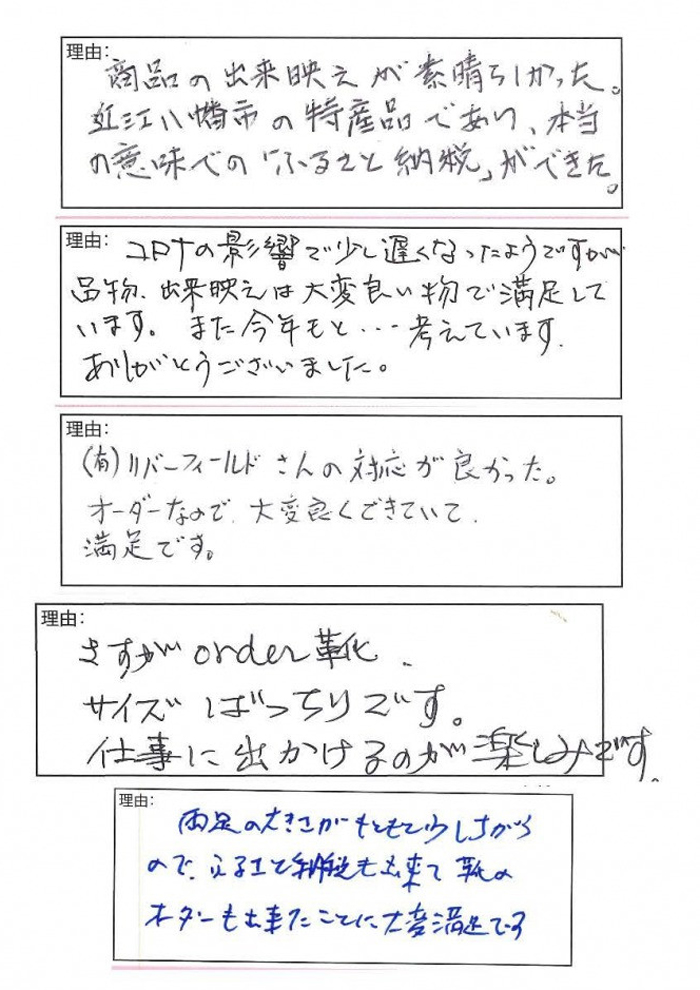 理由:
商品の出来映えが素晴らしかった。
近江八幡市の特産品であり、本当
の意味での「ふるさと納税」ができた。
理由:
コロナの影響で少し遅くなったようですが
品物、出来映えは大変良い物で満足して
います。また今年もと・・・考えています.
ありがとうございました。
理由:
(有)リバーフィールドさんの対応が良かった。
オーダーなので、大変良くできていて.
満足です。
理由:
さすがorder靴.
サイズばっちりです。
仕事に出かけるのが楽しみです。
理由:
両足の大きさがもともと少しちがう
ので、ふるさと納税も出来て靴の
オーダーも出来たことに大変満足です